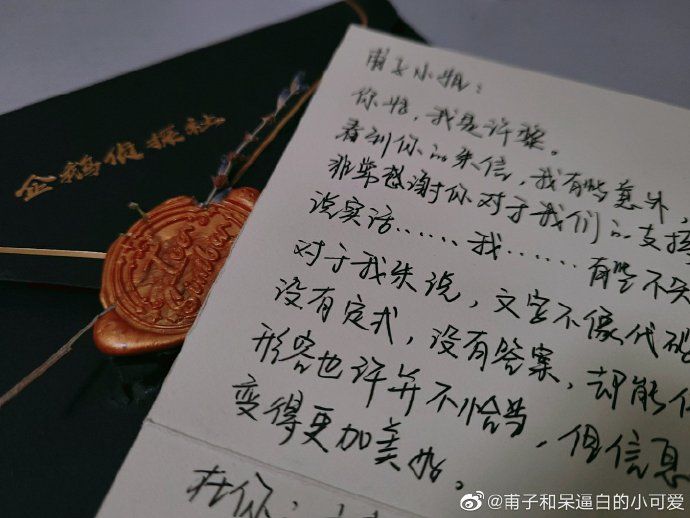 企鹅侦探社
甫子小姐：
你好，我是许墨。
看到你的来信，我有些意外，
非常感谢你对于我们的支持
说实话……我……有些不知
对于我来说，文字不像代码
没有定式，没有答案，却能
形容也许并不恰当，但信息
变得更加美好。
在你
@甫子和呆逼白的小可爱